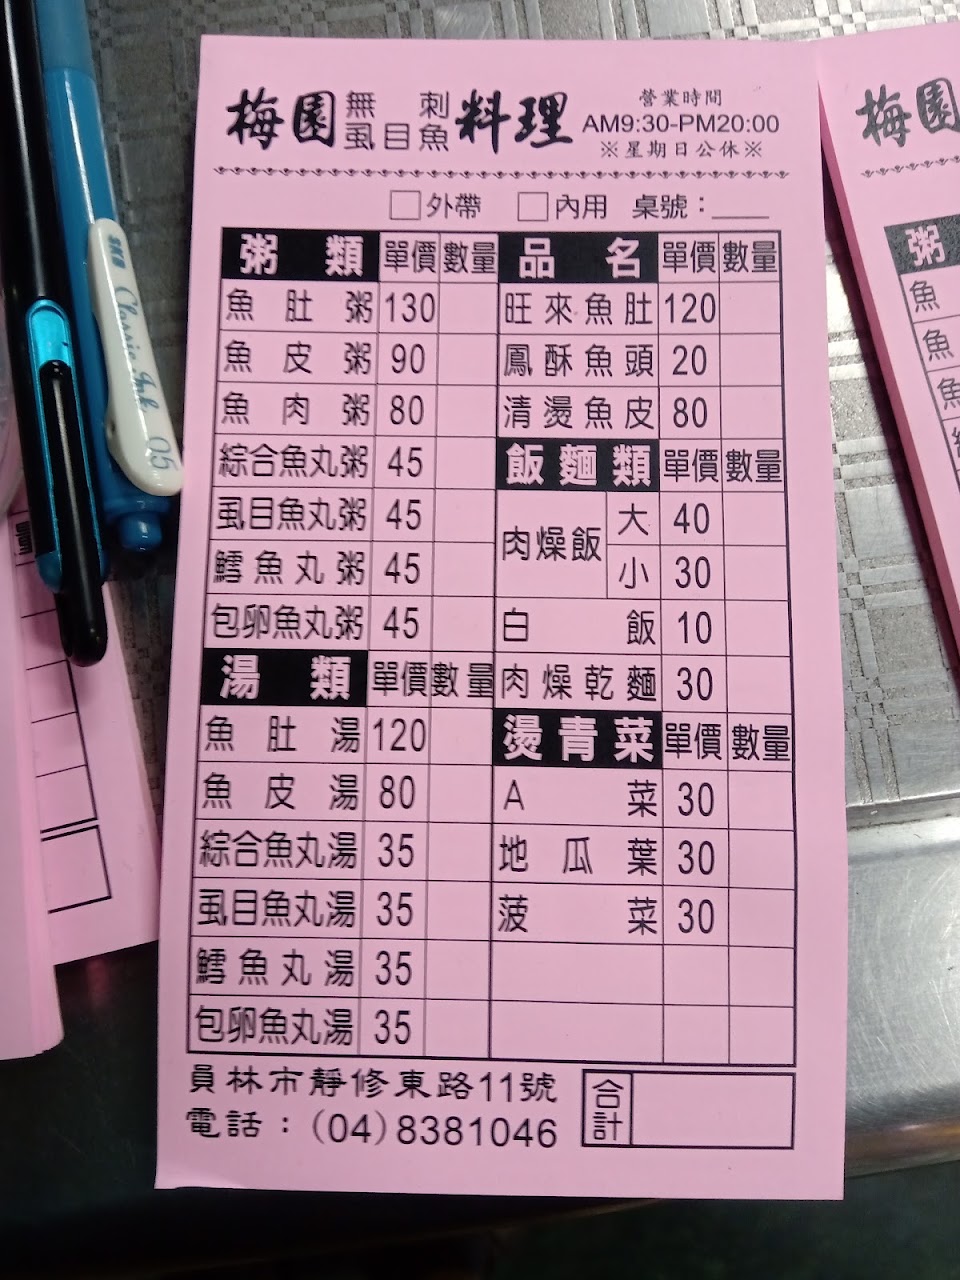 梅園無刺虱目魚料理
營業時間
AM9:30-PM20:00
※星期日公休※
□外帶 □內用 桌號：___
粥類 單價 數量
魚肚粥 130
魚皮粥 90
魚肉粥 80
綜合魚丸粥 45
虱目魚丸粥 45
鱈魚丸粥 45
包卵魚丸粥 45
湯類 單價 數量
魚肚湯 120
魚皮湯 80
綜合魚丸湯 35
虱目魚丸湯 35
鱈魚丸湯 35
包卵魚丸湯 35
品名 單價 數量
旺來魚肚 120
鳳酥魚頭 20
清燙魚皮 80
飯麵類 單價 數量
肉燥飯 大 40
小 30
白飯 10
肉燥乾麵 30
燙青菜 單價 數量
A菜 30
地瓜葉 30
菠菜 30
員林市靜修東路11號
電話：(04)8381046
合計
SKB Classic Ink 0.5
梅園
粥
魚
魚
魚